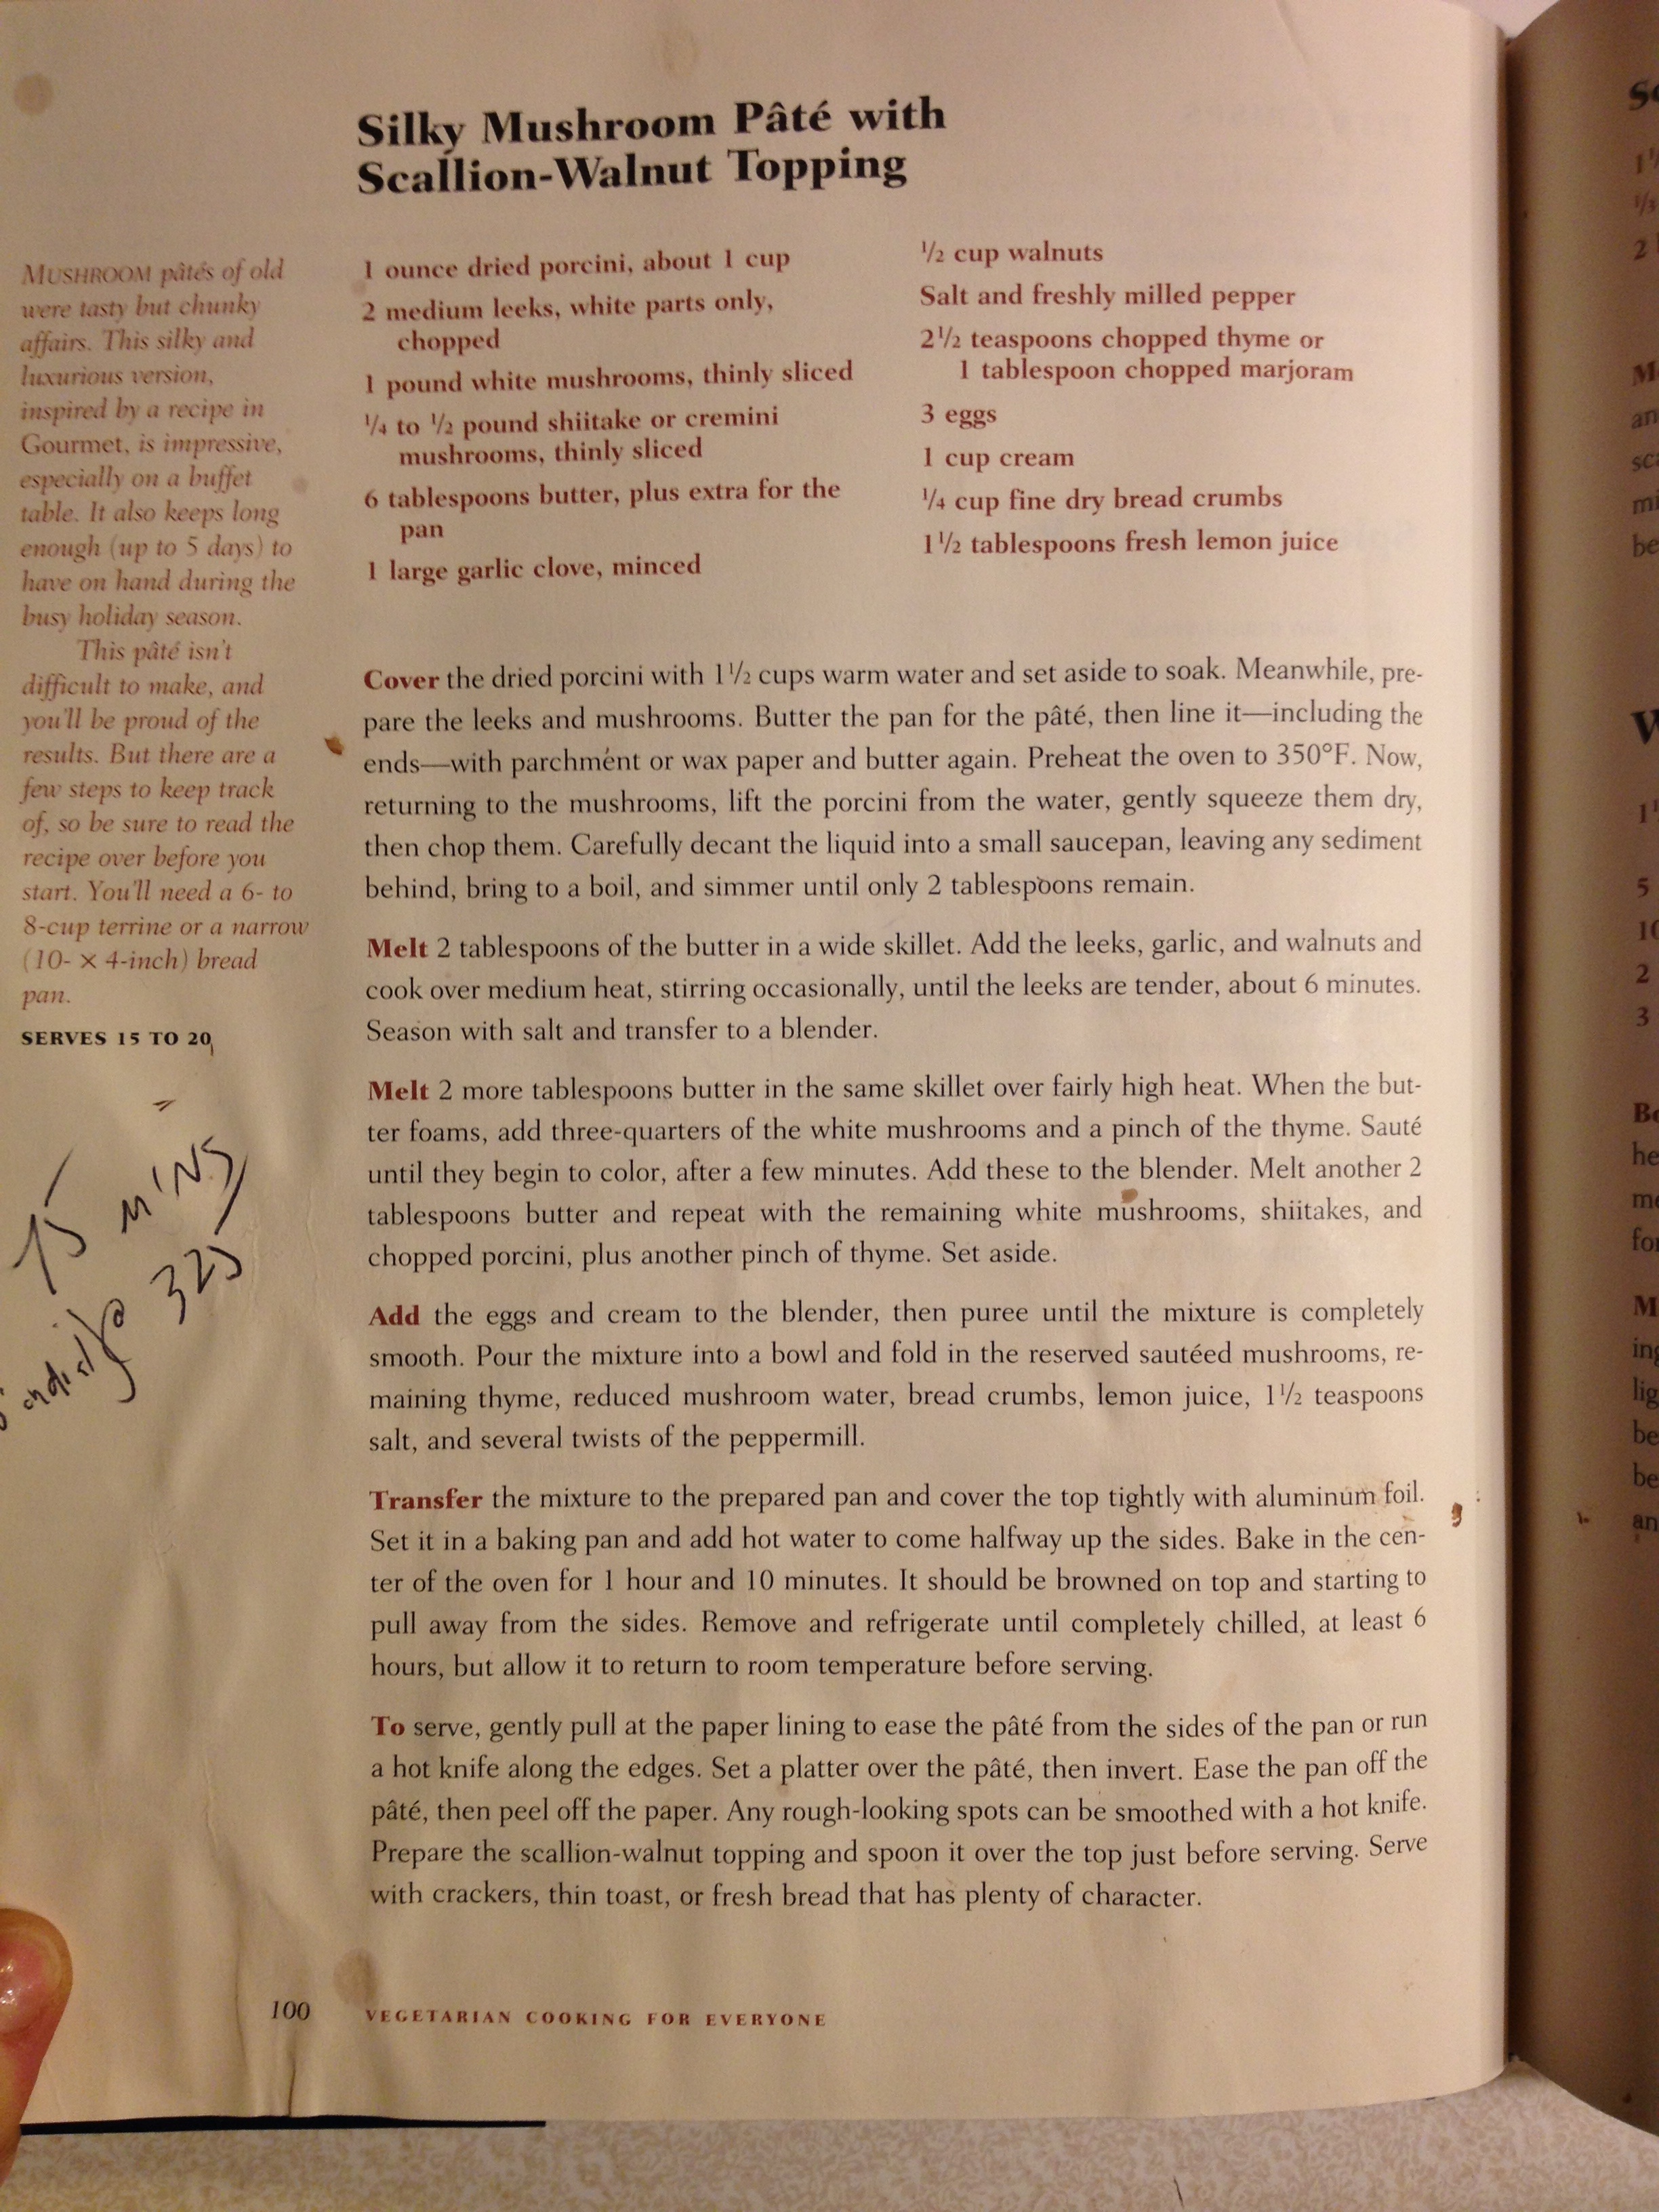 Silky Mushroom Pâté with
Scallion-Walnut Topping
MUSHROOM pâtés of old
were tasty but chunky
affairs. This silky and
luxurious version,
inspired by a recipe in
Gourmet, is impressive,
especially on a buffet
table. It also keeps long
enough (up to 5 days) to
have on hand during the
busy holiday season.
This pâté isn't
difficult to make, and
you'll be proud of the
results. But there are a
few steps to keep track
of, so be sure to read the
recipe over before you
start. You'll need a 6- to
8-cup terrine or a narrow
(10- × 4-inch) bread
pan.
SERVES 15 TO 20
15 mins
325
1 ounce dried porcini, about 1 cup
2 medium leeks, white parts only,
chopped
1 pound white mushrooms, thinly sliced
1/4 to 1/2 pound shiitake or cremini
mushrooms, thinly sliced
6 tablespoons butter, plus extra for the
pan
1 large garlic clove, minced
1/2 cup walnuts
Salt and freshly milled pepper
2 1/2 teaspoons chopped thyme or
1 tablespoon chopped marjoram
3 eggs
1 cup cream
1/4 cup fine dry bread crumbs
1 1/2 tablespoons fresh lemon juice
Cover the dried porcini with 1 1/2 cups warm water and set aside to soak. Meanwhile, pre-
pare the leeks and mushrooms. Butter the pan for the pâté, then line it—including the
ends—with parchment or wax paper and butter again. Preheat the oven to 350°F. Now,
returning to the mushrooms, lift the porcini from the water, gently squeeze them dry,
then chop them. Carefully decant the liquid into a small saucepan, leaving any sediment
behind, bring to a boil, and simmer until only 2 tablespoons remain.
Melt 2 tablespoons of the butter in a wide skillet. Add the leeks, garlic, and walnuts and
cook over medium heat, stirring occasionally, until the leeks are tender, about 6 minutes.
Season with salt and transfer to a blender.
Melt 2 more tablespoons butter in the same skillet over fairly high heat. When the but-
ter foams, add three-quarters of the white mushrooms and a pinch of the thyme. Sauté
until they begin to color, after a few minutes. Add these to the blender. Melt another 2
tablespoons butter and repeat with the remaining white mushrooms, shiitakes, and
chopped porcini, plus another pinch of thyme. Set aside.
Add the eggs and cream to the blender, then puree until the mixture is completely
smooth. Pour the mixture into a bowl and fold in the reserved sautéed mushrooms, re-
maining thyme, reduced mushroom water, bread crumbs, lemon juice, 1 1/2 teaspoons
salt, and several twists of the peppermill.
Transfer the mixture to the prepared pan and cover the top tightly with aluminum foil.
Set it in a baking pan and add hot water to come halfway up the sides. Bake in the cen-
ter of the oven for 1 hour and 10 minutes. It should be browned on top and starting to
pull away from the sides. Remove and refrigerate until completely chilled, at least 6
hours, but allow it to return to room temperature before serving.
To serve, gently pull at the paper lining to ease the pâté from the sides of the pan or run
a hot knife along the edges. Set a platter over the pâté, then invert. Ease the pan off the
pâté, then peel off the paper. Any rough-looking spots can be smoothed with a hot knife.
Prepare the scallion-walnut topping and spoon it over the top just before serving. Serve
with crackers, thin toast, or fresh bread that has plenty of character.
100 VEGETARIAN COOKING FOR EVERYONE